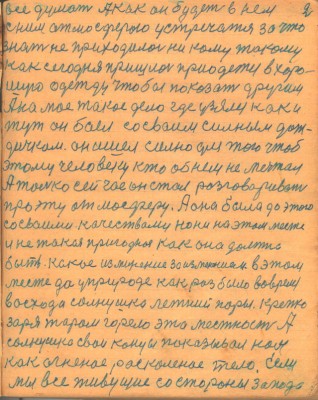 2
все думат А как он будет в нем
с ним атмосферою устречатся за что
знат не приходилос ни кому такому
как сегодня пришлос приодети в хоро-
шую одежду чтобы показат другим
А на мое такое дело где узяли как и
тут он боел со сваим силным дож-
дичком. он ишел силно для того чтоб
этому человеку кто об нем не мечтал
А толко сей час он стал розговариват
про эту отмосферу. А она была до этого
со сваими качествами но ни на этом месте
и не такая природная как она должна
быть какое измирение за измением в этом
месте да у природе как раз било во время
восхода солнушка летний поры. крепко
заря жаром горело это местность А
солнушко свои концы показывал нам
как огненое расколеное тело. Если
мы все живущие со стороны запада